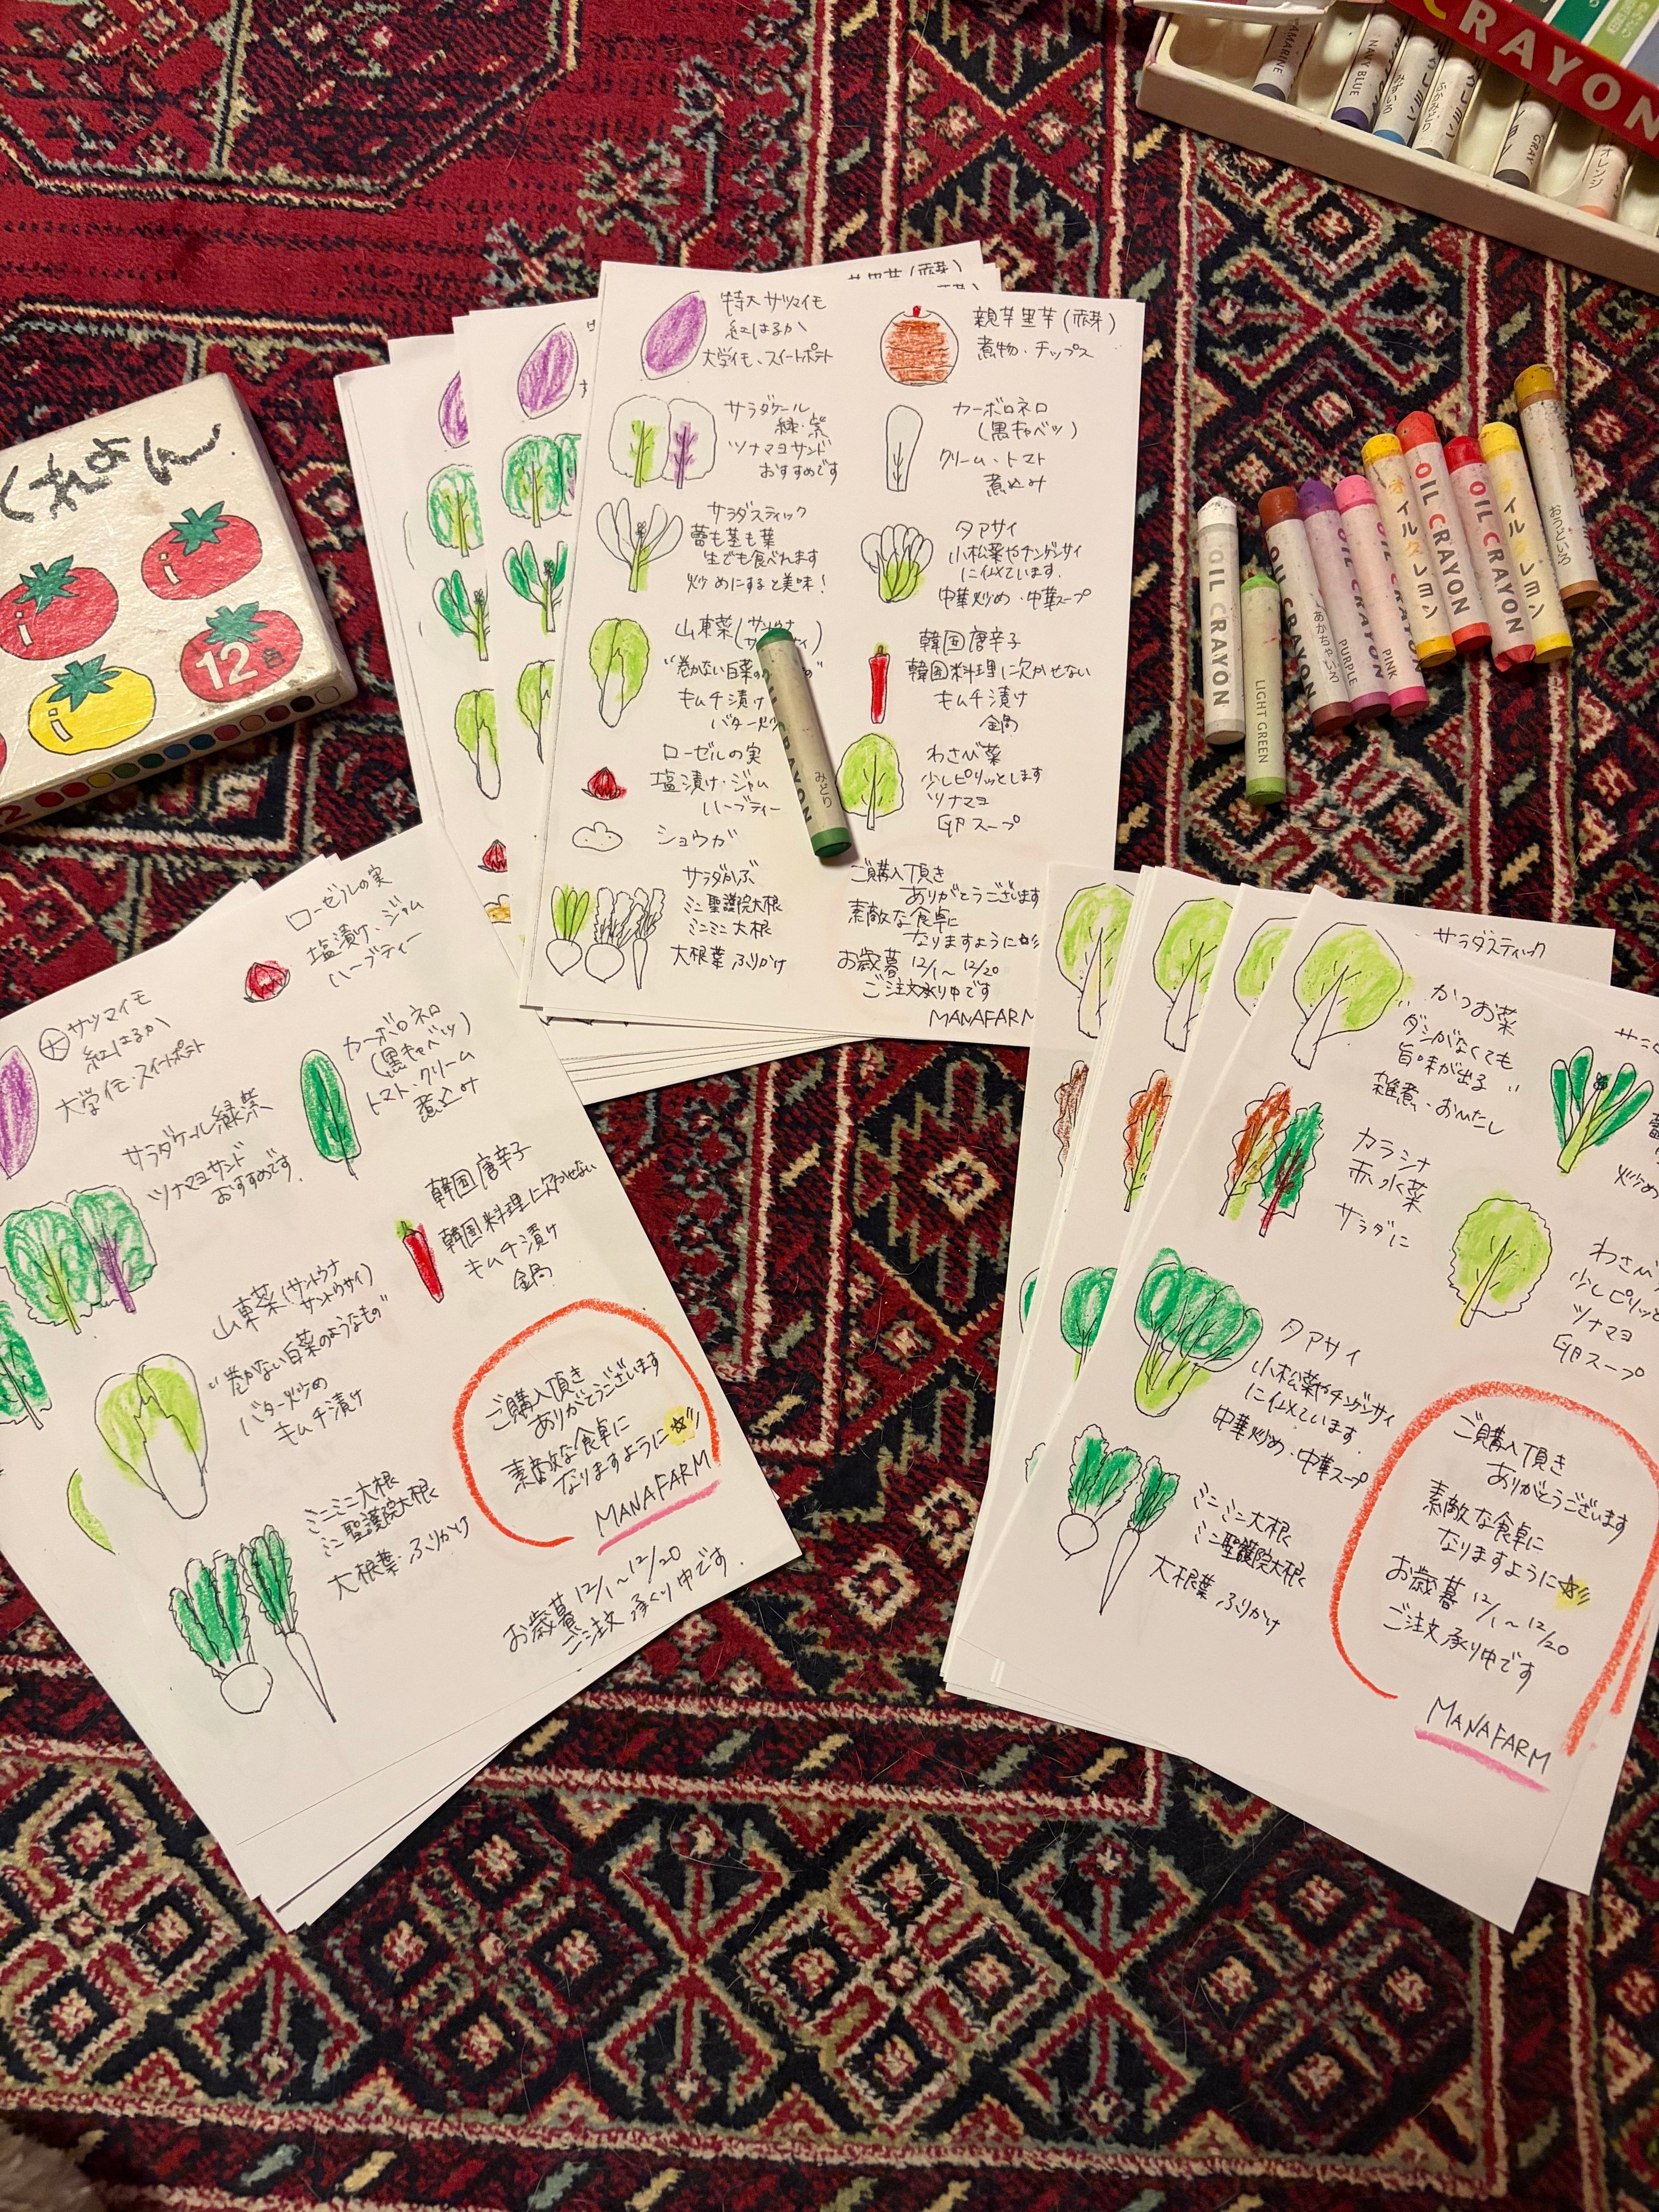 CRAYON
ULTRAMARINE
NAVY BLUE
みずいろ
ふかみどり
GRAY
オレンジ
くれよん
12色
特大サツマイモ
紅はるか
大学イモ、スイートポテト
親芋里芋(赤芽)
煮物・チップス
サラダケール
緑・紫
ツナマヨサンド
おすすめです
カーボロネロ
(黒キャベツ)
クリーム・トマト
煮込み
サラダスティック
蕾も茎も葉
生でも食べれます
炒めにすると美味!
タアサイ
小松菜やチンゲンサイ
に似ています.
中華炒め・中華スープ
山東菜(サントウナ
"巻かない白菜の
キムチ漬け
バター炒
韓国唐辛子
韓国料理に欠かせない
キムチ漬け
鍋
ローゼルの実
塩漬け・ジャム
ハーブティー
わさび菜
少しピリッとします
ツナマヨ
卵スープ
ショウガ
サラダかぶ
ミニ聖護院大根
ミニミニ大根
大根葉 ふりかけ
ご購入頂き
ありがとうございます
素敵な食卓に
なりますように☆彡
お歳暮 12/1〜12/20
ご注文承り中です
MANAFARM
みどり
OIL CRAYON
LIGHT GREEN
OIL CRAYON
あかちゃいろ
OIL CRAYON
PURPLE
OIL CRAYON
PINK
オイルクレヨン
OIL CRAYON
OIL CRAYON
オイルクレヨン
おうどいろ
ローゼルの実
塩漬け・ジャム
ハーブティー
大サツマイモ
紅はるか
大学イモ・スイートポテト
カーボロネロ
(黒キャベツ)
トマト・クリーム
煮込み
サラダケール緑紫
ツナマヨサンド
おすすめです.
韓国唐辛子
韓国料理に欠かせない
キムチ漬け
鍋
山東菜(サントウナ
サントウサイ)
"巻かない白菜のようなもの"
バター炒め
キムチ漬け
ミニミニ大根
ミニ聖護院大根
大根葉 ふりかけ
ご購入頂き
ありがとうございます
素敵な食卓に
なりますように☆彡
MANAFARM
お歳暮 12/1〜12/20
ご注文承り中です.
サラダスティック
かつお菜
"ダシがなくても
旨味が出る"
雑煮・おひたし
カラシナ
赤水菜
サラダに
炒め
わさび
少しピリッと
ツナマヨ
卵スープ
タアサイ
小松菜やチンゲンサイ
に似ています.
中華炒め・中華スープ
ミニミニ大根
ミニ聖護院大根
大根葉 ふりかけ
ご購入頂き
ありがとうございます
素敵な食卓に
なりますように☆彡
お歳暮 12/1〜12/20
ご注文承り中です
MANAFARM